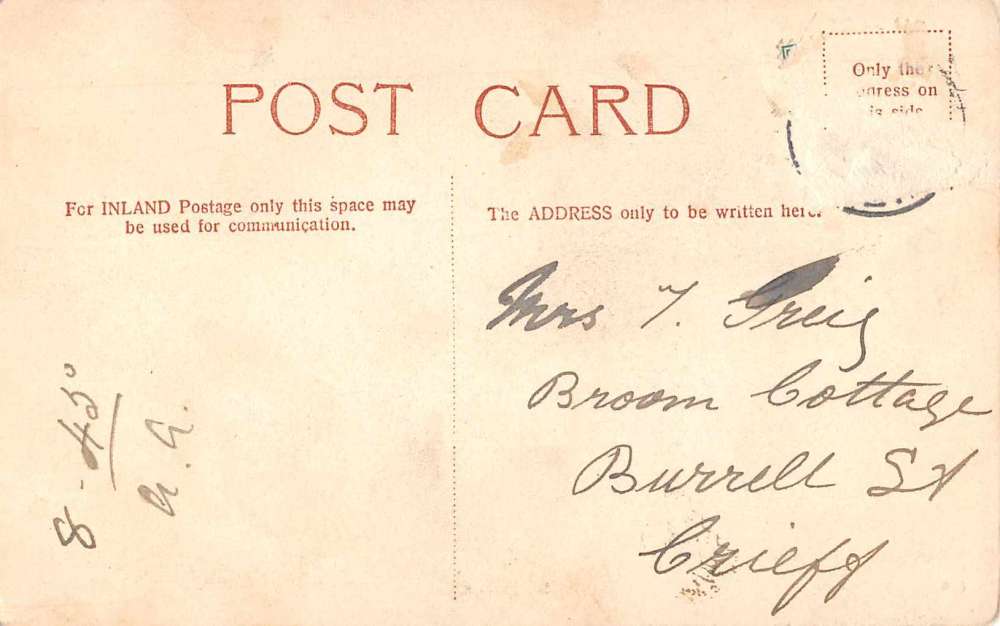 POST CARD
Only the
on
For INLAND Postage only this space may
be used for communication.
The ADDRESS only to be written here.
Mrs T. Greig
Broom Cottage
Burrell St
Crieff
8-45